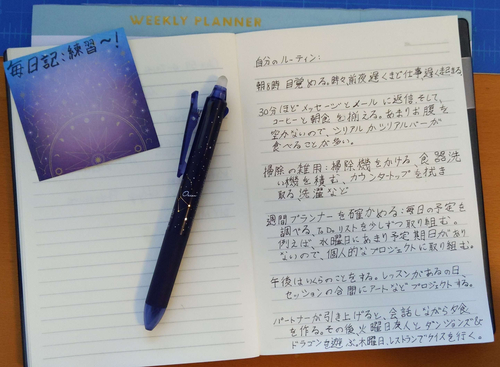 WEEKLY PLANNER
毎日記:練習〜!
自分のルーティン:
朝8時目覚める。時々、前夜遅くまで仕事、遅く起きる。
30分ほどメッセージとメールに返信。そして、
コーヒーと朝食を揃える。あまりお腹を
空かないので、シリアルかシリアルバーが
食べることが多い。
掃除の雑用:掃除機をかける、食器洗
い機を積む、カウンタートップを拭き
取る、洗濯など
週間プランナーを確かめる:毎日の予定を
調べる、To Do リストを少しずつ取り組む。
例えば、水曜日にあまり予定期日があり
ないので、個人的なプロジェクトに取り組む。
午後はいくらのことをする。レッスンがあるの日、
セッションの合間にアートなどプロジェクトする。
パートナーが引き上げると、会話しながら夕食
を作る。その後、火曜日友人と、ダンジョンズ&
ドラゴンを遊ぶ。木曜日、レストランでクイズを行く。